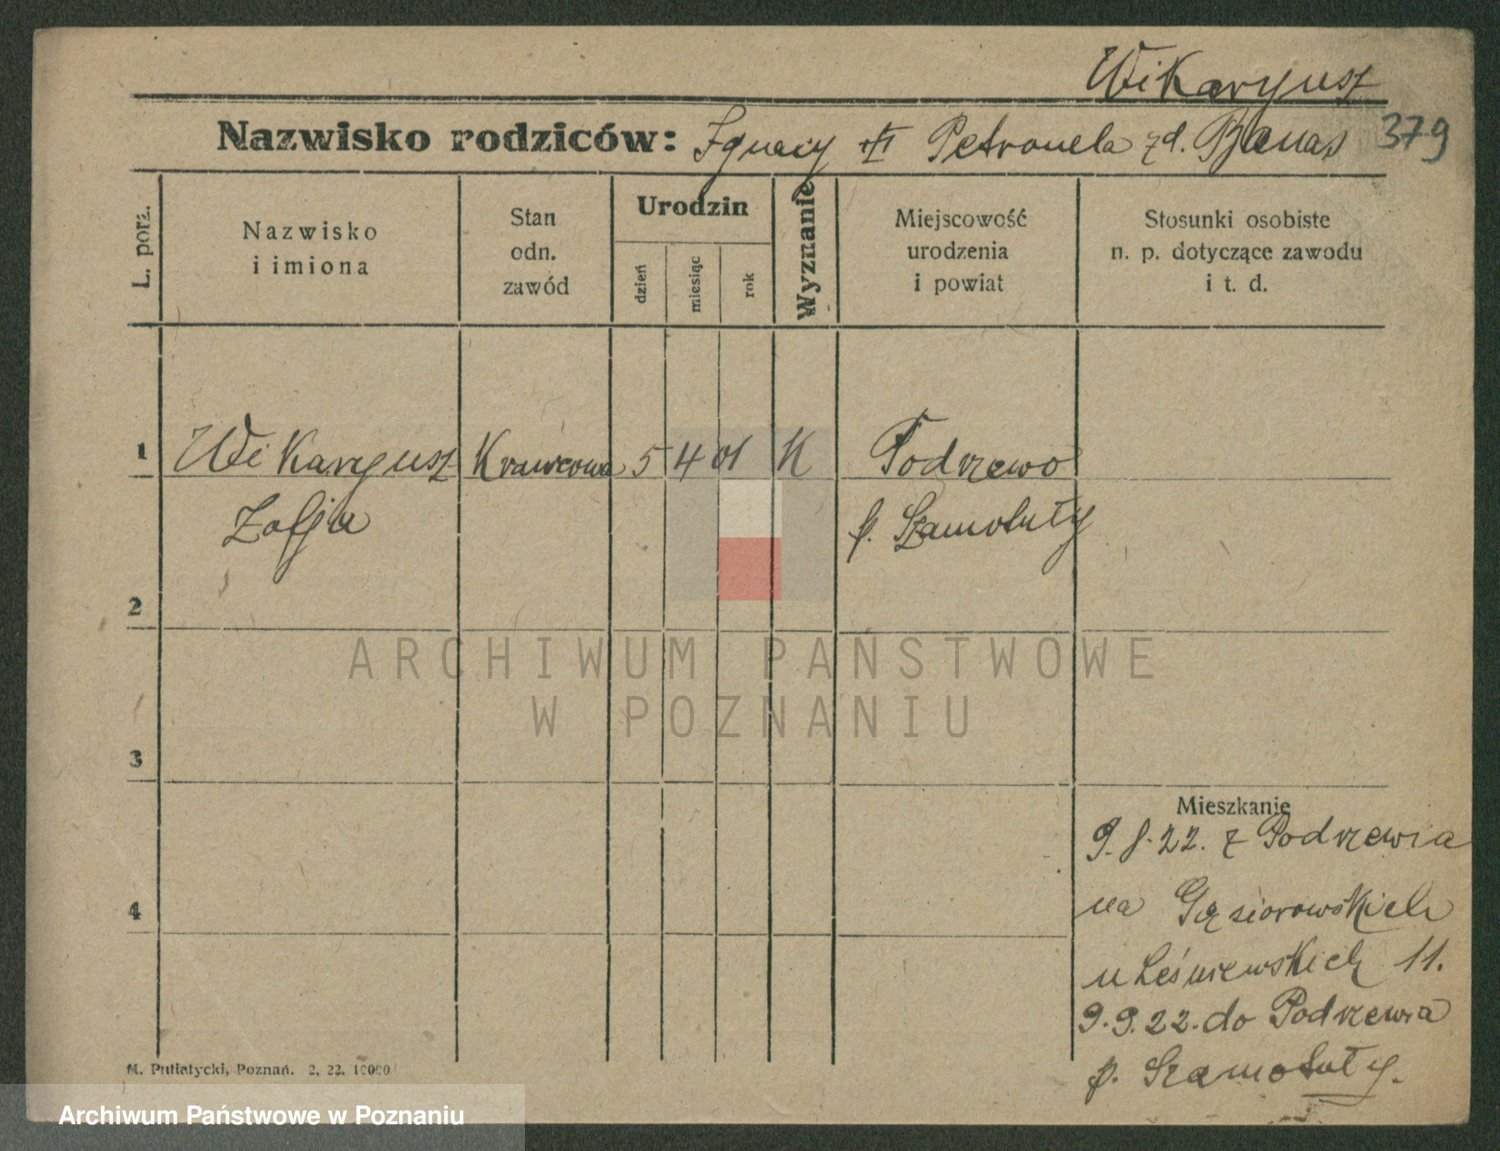 Wikaryusz
Nazwisko rodziców: Ignacy Petronela zd. Banas 379
L. porz.
Nazwisko
i imiona
Stan
odn.
zawód
Urodzin
dzień
miesiąc
rok
Wyznanie
Miejscowość
urodzenia
i powiat
Stosunki osobiste
n. p. dotyczące zawodu
i t. d.
1 Wikaryusz Krawcowa 5 4 01 K Podrzewo
Zofja p. Szamotuły
2
ARCHIWUM PAŃSTWOWE
W POZNANIU
3
Mieszkanie
9.8.22. z Podrzewia
na Gąsiorowskich
4
u Leśniewskich 11.
9.9.22. do Podrzewia
p. Szamotuły.
M. Putiatycki, Poznań. 2. 22. 10000
Archiwum Państwowe w Poznaniu